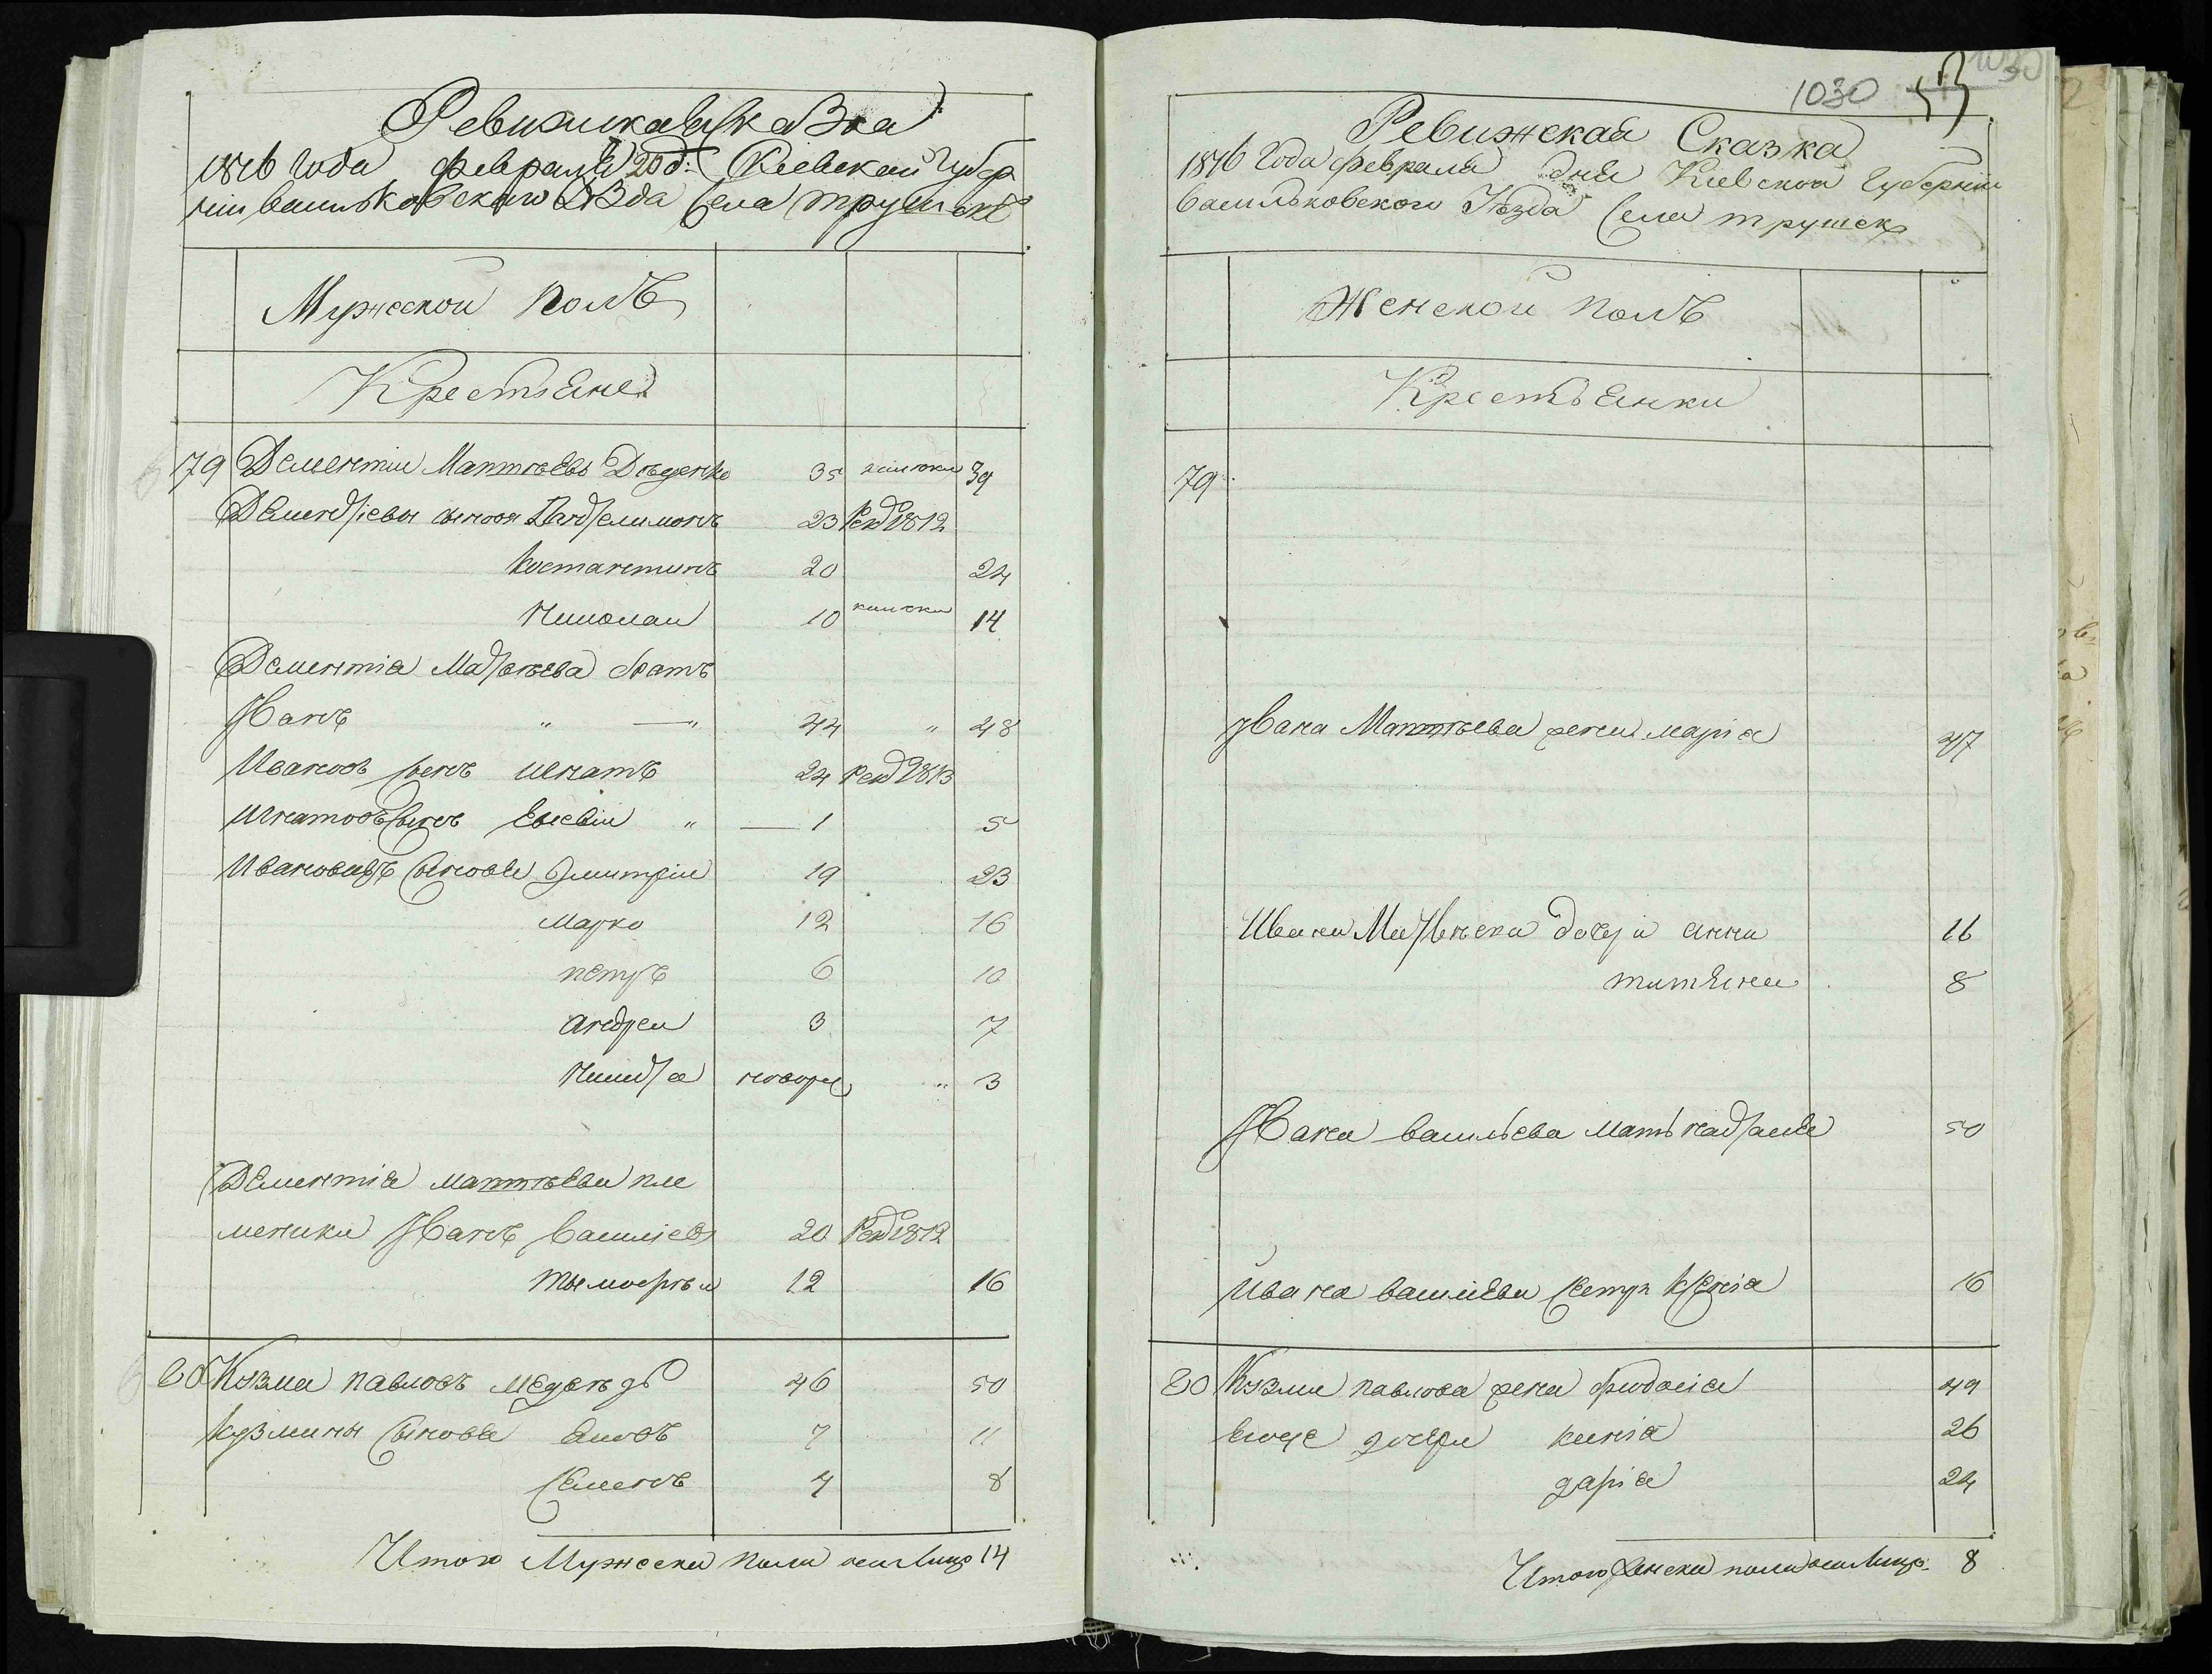 Ревижская Сказка
1816 Года февраля 20 д: Киевской Губер
нии васильковского уѣзда Села трушекъ
Мужеской полъ
Крестьяне
79 Дементии Маттѣевъ 35 39
Дементіевы сынови Пантелимонъ 23 Рек 1812
Костантинъ 20 24
Николаи 10 14
Дементіа Матвѣева братъ
Иванъ " — " 44 " 48
Ивановъ сынъ Игнатъ 24 Рек 1813
Игнатовъ сынъ Евсевіи " — 1 5
Ивановы сыновья Дмитріи 19 23
Марко 12 16
петръ 6 10
андреи 3 7
Никита новоро " 3
Дементіа маттѣева пле
меники Иванъ Василіевъ 20 Рек 1812
тымофѣи 12 16
80 Кузма павловъ медвѣдь 46 50
Кузмины сыновья Яковъ 7 11
Семенъ 4 8
Итого Мужеска пола на Лицо 14
1030
53
Ревижская Сказка
1816 Года февраля дня Кіевской Губернии
Васильковского Уѣзда Села трушекъ
Женской полъ
Крестьянки
79
Ивана Маттѣева жена маріа 47
Ивана Матвѣева дочери анна 16
татяна 8
Ивана васильева мать наталья 50
Ивана василіева сестра Ксенія 16
80 Кузми павлова жена феодосіа 49
Евоже дочери ксеніа 26
даріа 24
Итого женска пола на Лицо 8